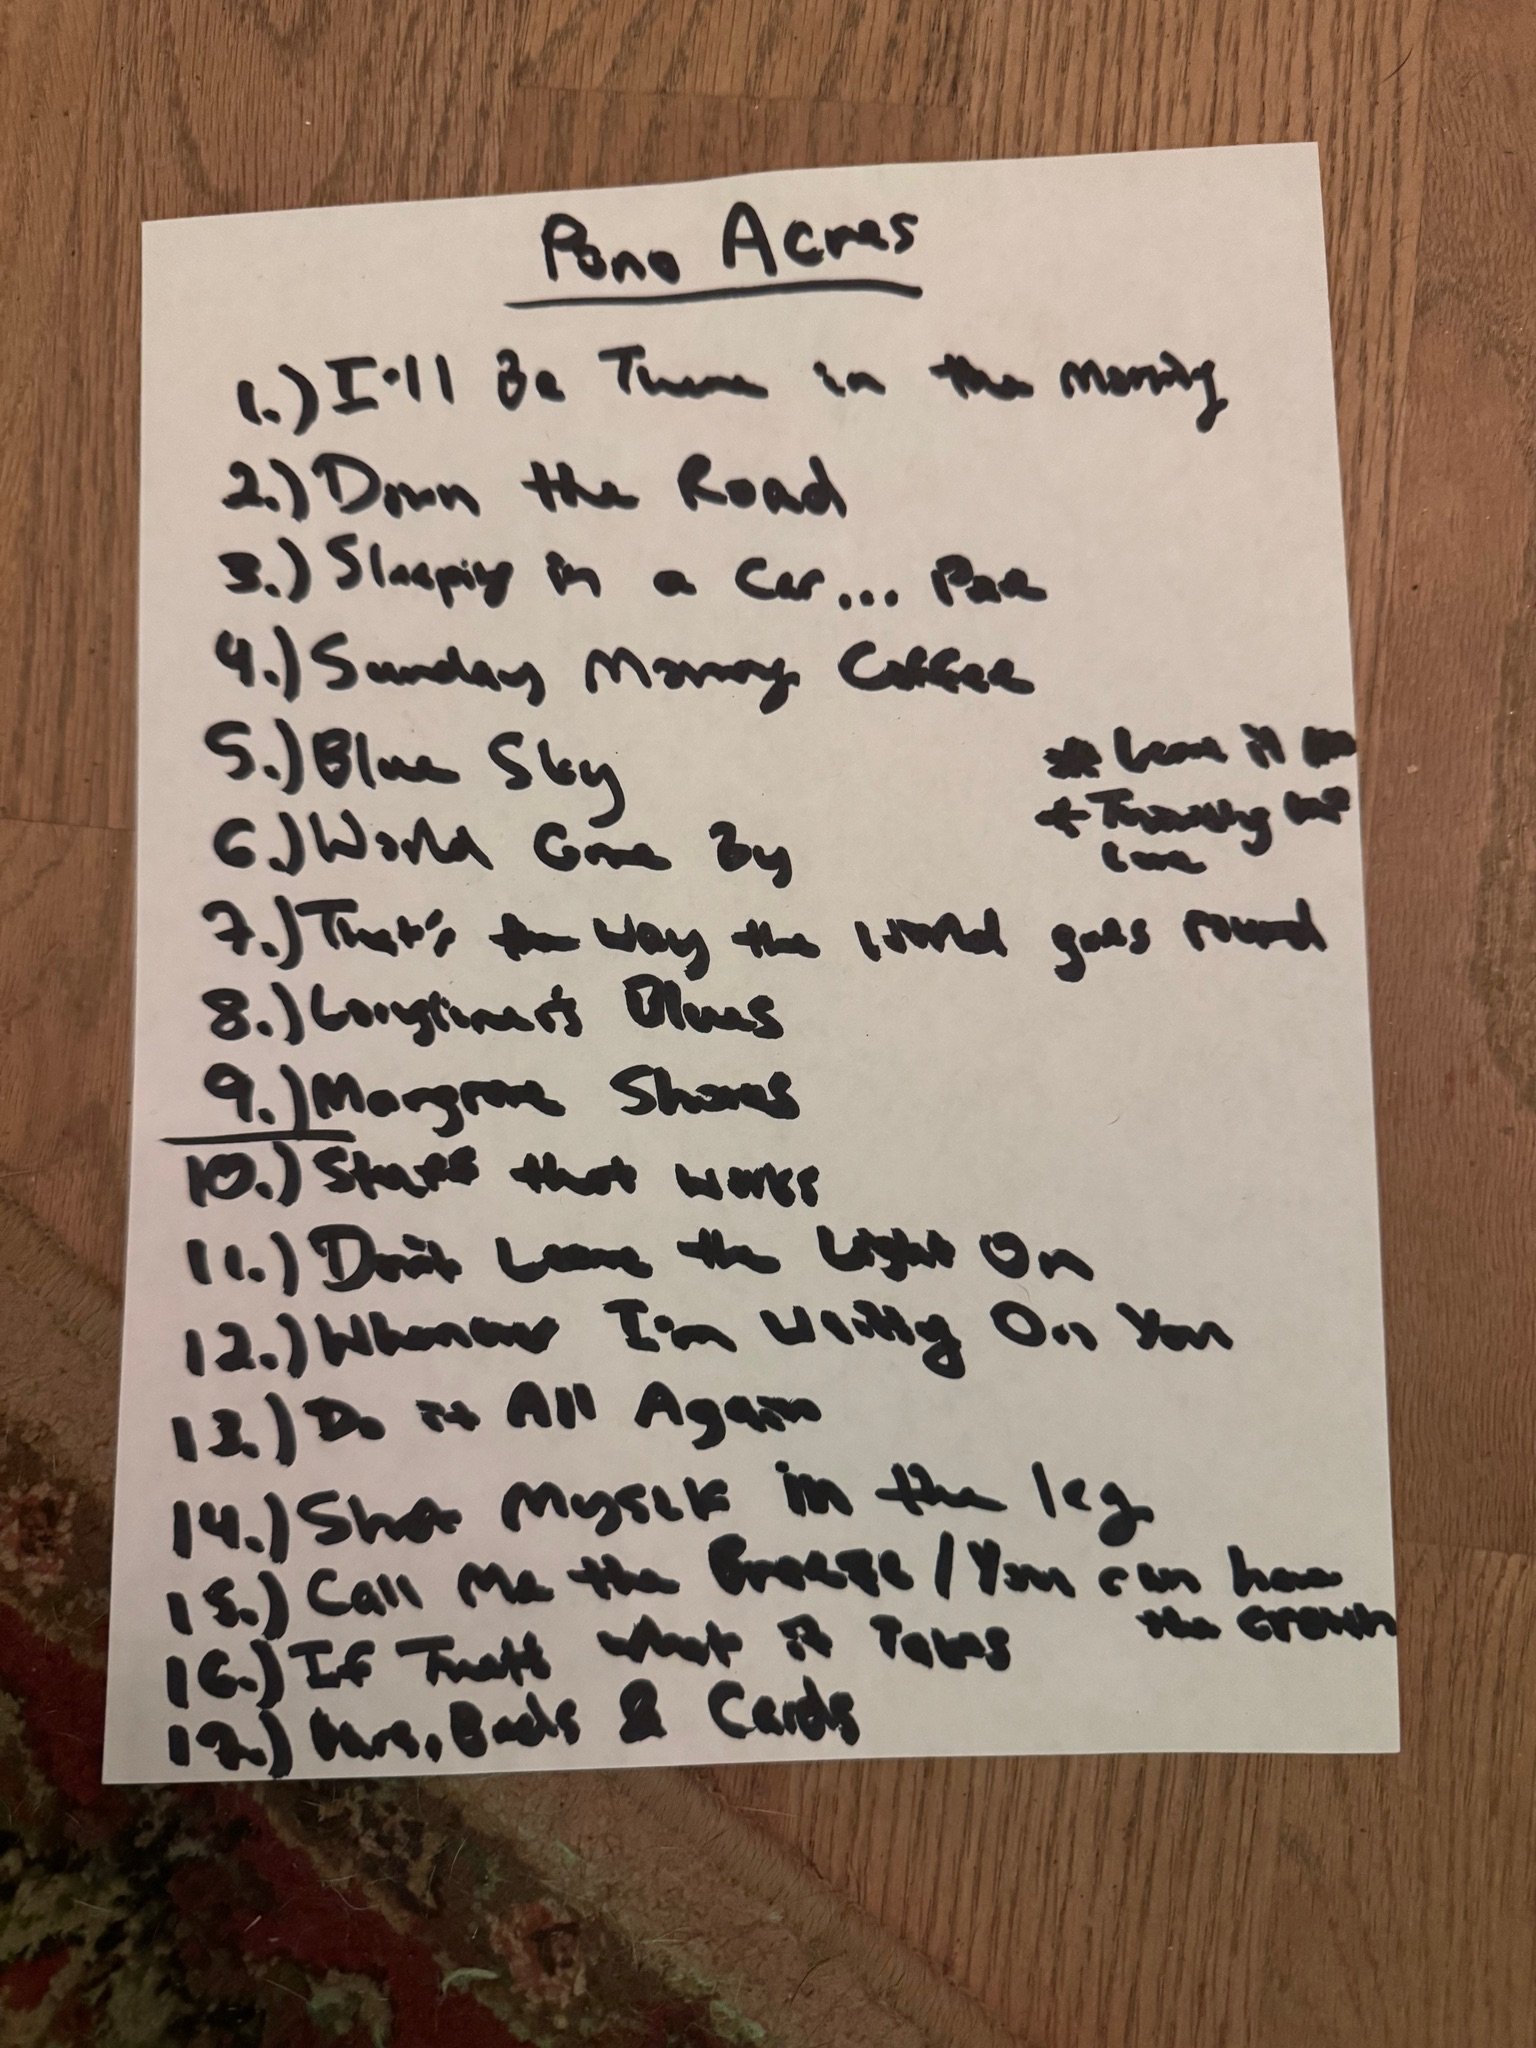 Pono Acres
1.) I'll Be There in the Morning
2.) Down the Road
3.) Sleeping in a Car... Pae
4.) Sunday Morning Coffee
5.) Blue Sky
* Leave it
6.) World Gone By
* Throwing
Love
7.) That's the Way the World goes round
8.) Longliner's Blues
9.) Mangrove Shores
10.) Stuff that works
11.) Don't Leave the Light On
12.) Whenever I'm Waiting On You
13.) Do it All Again
14.) Shot Myself in the leg
15.) Call Me the Breeze / You can have
the Crown
16.) If That's What it Takes
17.) Bars, Beds & Cards